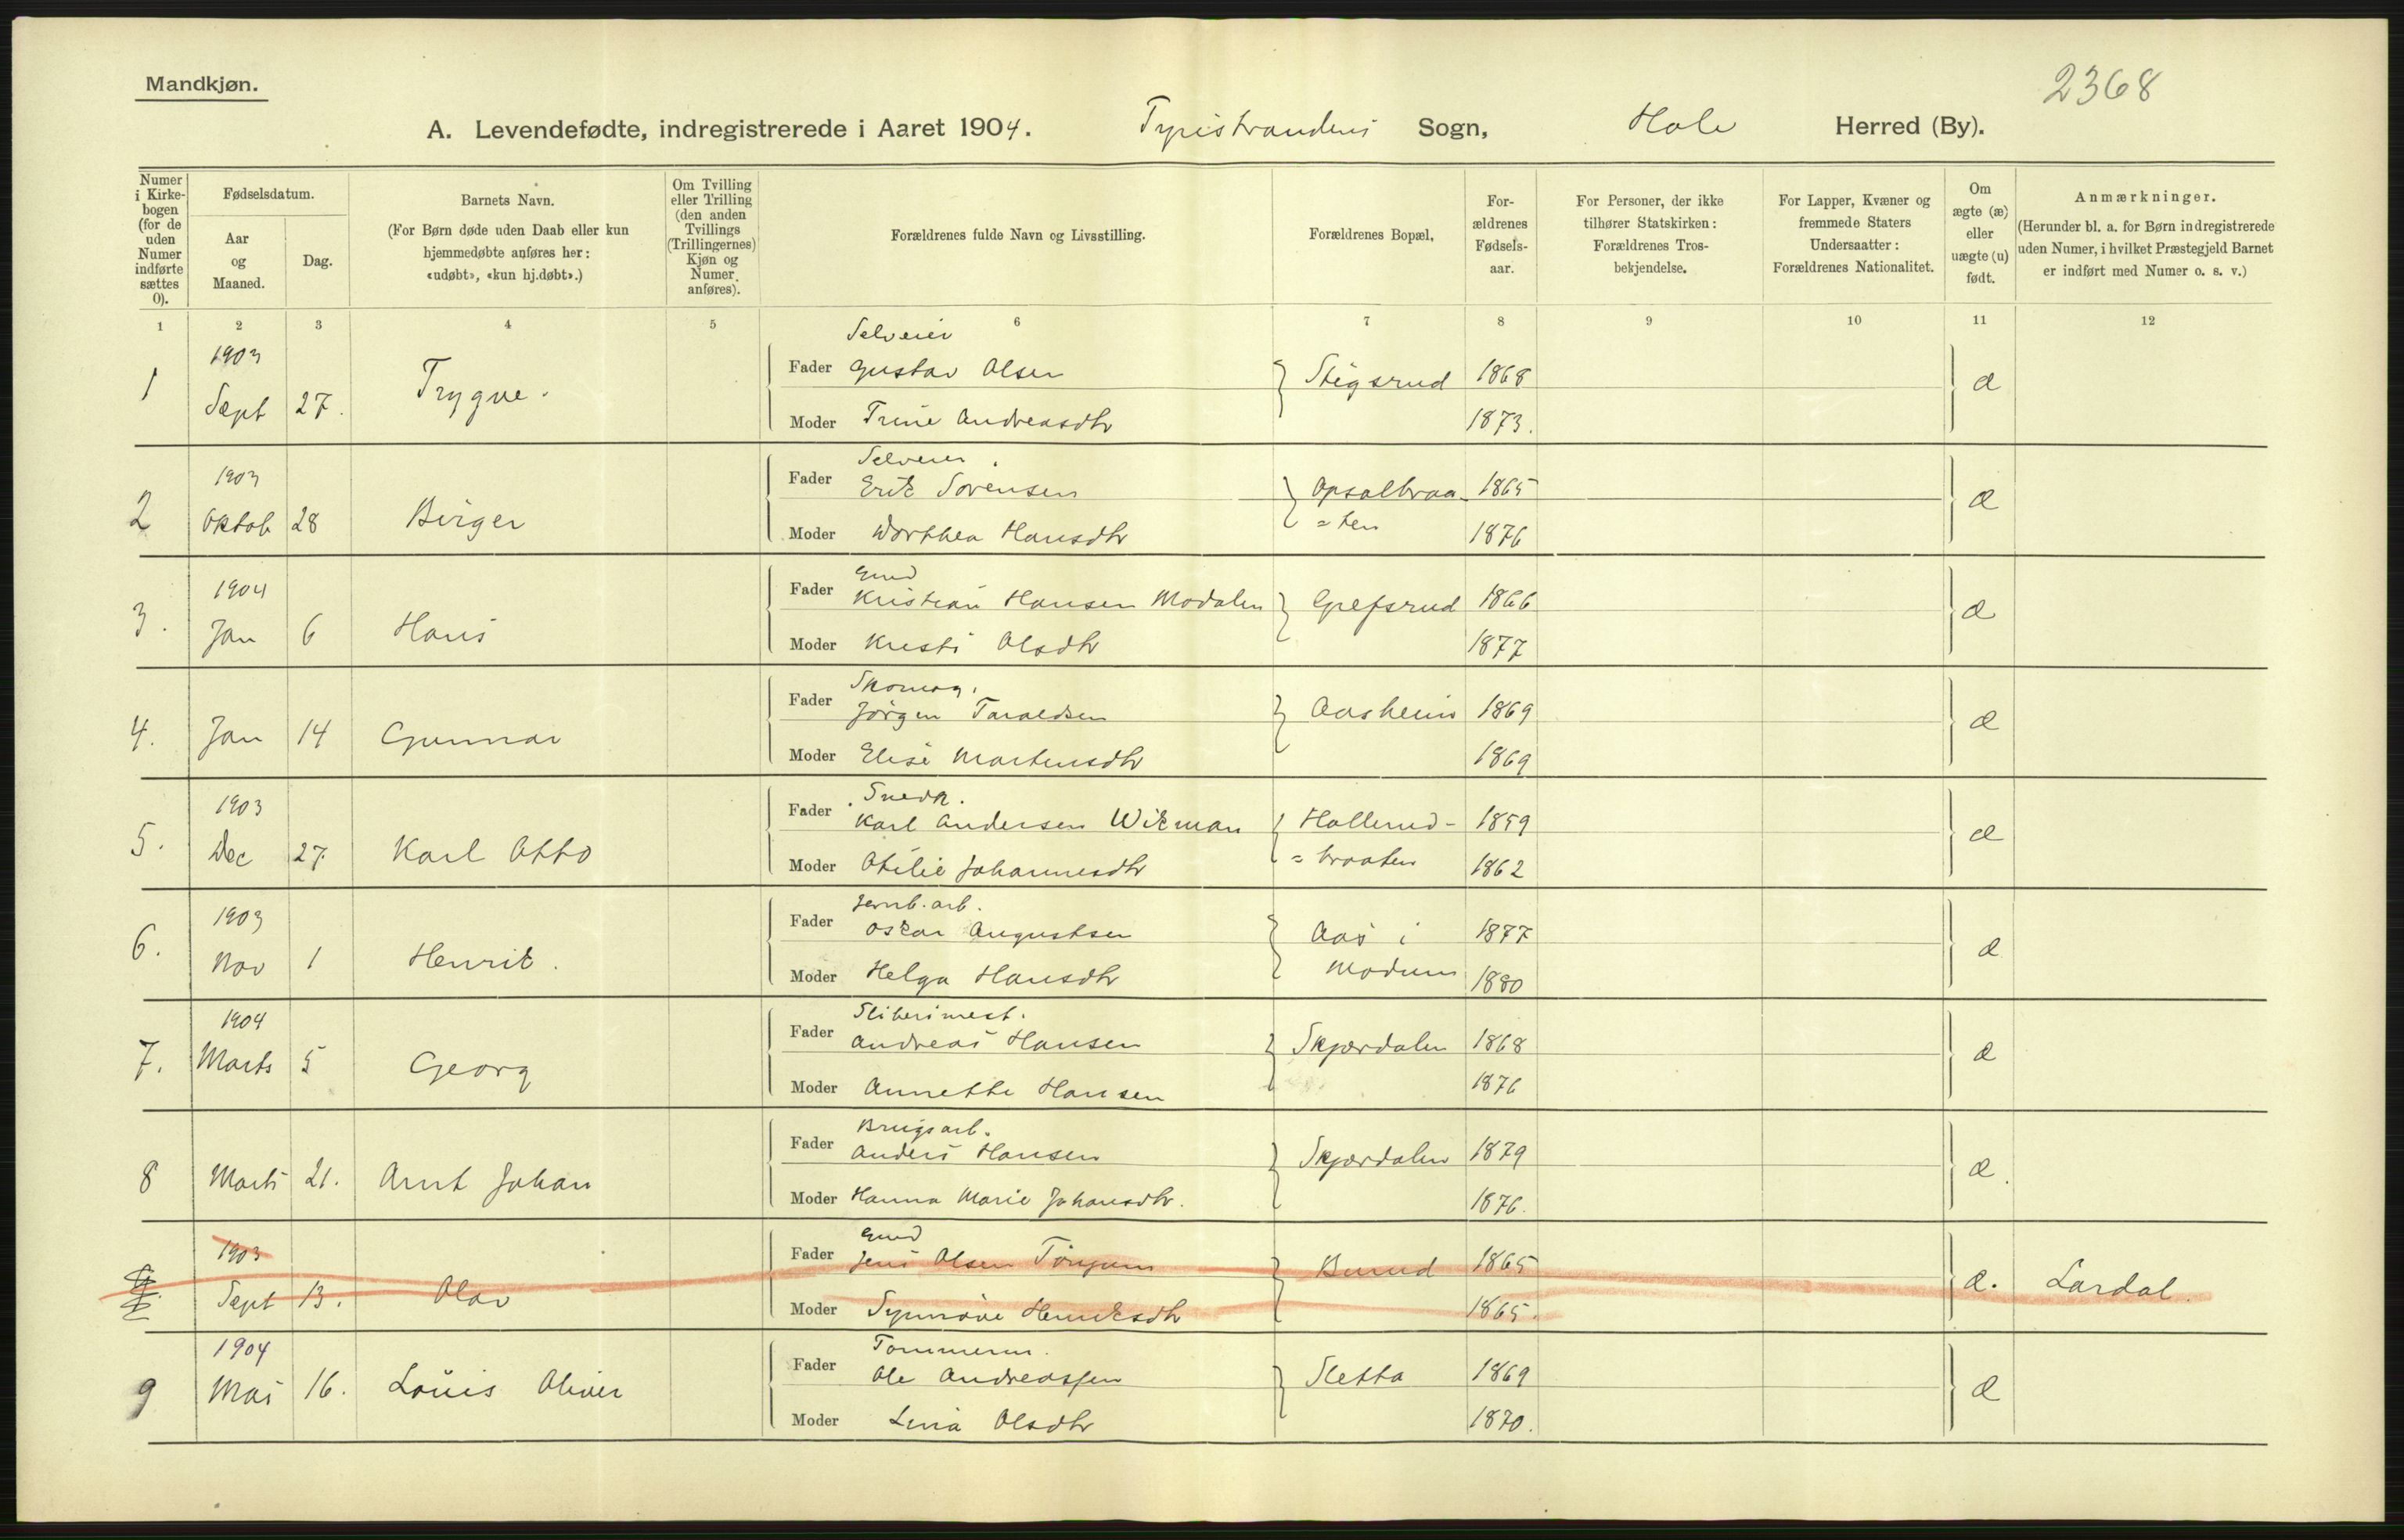 Mandkjøn.
2368
A. Levendefødte, indregistrerede i Aaret 1904. Tyristrandens Sogn, Hole Herred (By).
Numer i Kirkebogen (for de uden Numer indførte sættes 0).
Fødselsdatum.
Aar og Maaned.
Dag.
Barnets Navn.
(For Børn døde uden Daab eller kun hjemmedøbte anføres her: «udøbt», «kun hj.døbt».)
Om Tvilling eller Trilling (den anden Tvillings (Trillingernes) Kjøn og Numer anføres).
Forældrenes fulde Navn og Livsstilling.
Forældrenes Bopæl.
Forældrenes Fødselsaar.
For Personer, der ikke tilhører Statskirken: Forældrenes Trosbekjendelse.
For Lapper, Kvæner og fremmede Staters Undersaatter: Forældrenes Nationalitet.
Om ægte (æ) eller uægte (u) født.
Anmærkninger.
(Herunder bl. a. for Børn indregistrerede uden Numer, i hvilket Præstegjeld Barnet er indført med Numer o. s. v.)
1 2 3 4 5 6 7 8 9 10 11 12
1903 Selveier
1 Sept 27. Trygve. Fader Gustav Olsen Stigsrud 1868 æ
Moder Trine Andreasdtr 1873.
1903 Selveier
2 Oktob 28 Birger Fader Erik Sörensen Opsalbraa- 1865 æ
Moder Dorthea Hansdtr =ten 1876
1904 Gmd
3. Jan 6 Hans Fader Kristian Hansen Modalen Grefsrud 1866 æ
Moder Kristi Olsdtr 1877
Skomag.
4. Jan 14 Gunnar Fader Jörgen Taraldsen Aasheim 1869 æ
Moder Elise Martinsdtr 1869
1903 Snedk.
5. Dec 27. Karl Otto Fader Karl Andersen Wikman Hollerud- 1859 æ
Moder Otilie Johannesdtr =braaten 1862
1903 Jernb. arb.
6. Nov 1 Henrik. Fader Oskar Augustsen Aas i 1877 æ
Moder Helga Hansdtr Modum 1880
1904 Sliberimest.
7. Marts 5 Georg Fader Andreas Hansen Skjærdalen 1868 æ
Moder Annette Hansen 1876
Brugsarb.
8 Marts 21. Arnt Johan Fader Anders Hansen Skjærdalen 1879 æ.
Moder Hanna Marie Johansdtr. 1876.
1903 Gmd
Sept 13. Olav Fader Jens Olsen Burud 1865 æ. Lardal.
Moder Synnöve Henriksdtr 1865.
1904 Tömmerm.
9 Mai 16. Louis Oliver Fader Ole Andreassen Sletta 1869 æ
Moder Lina Olsdtr 1870.